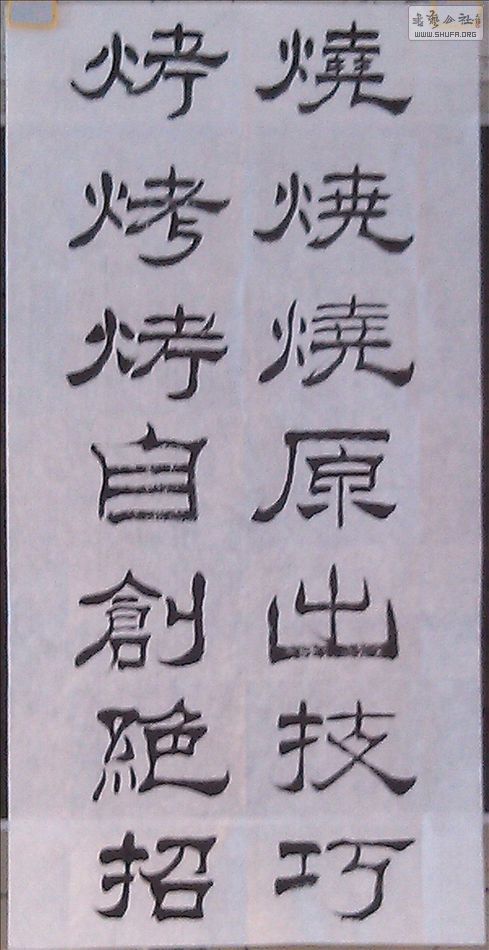 燒燒燒原出技巧
烤烤烤自創絕招
書藝公社
WWW.SHUFA.ORG